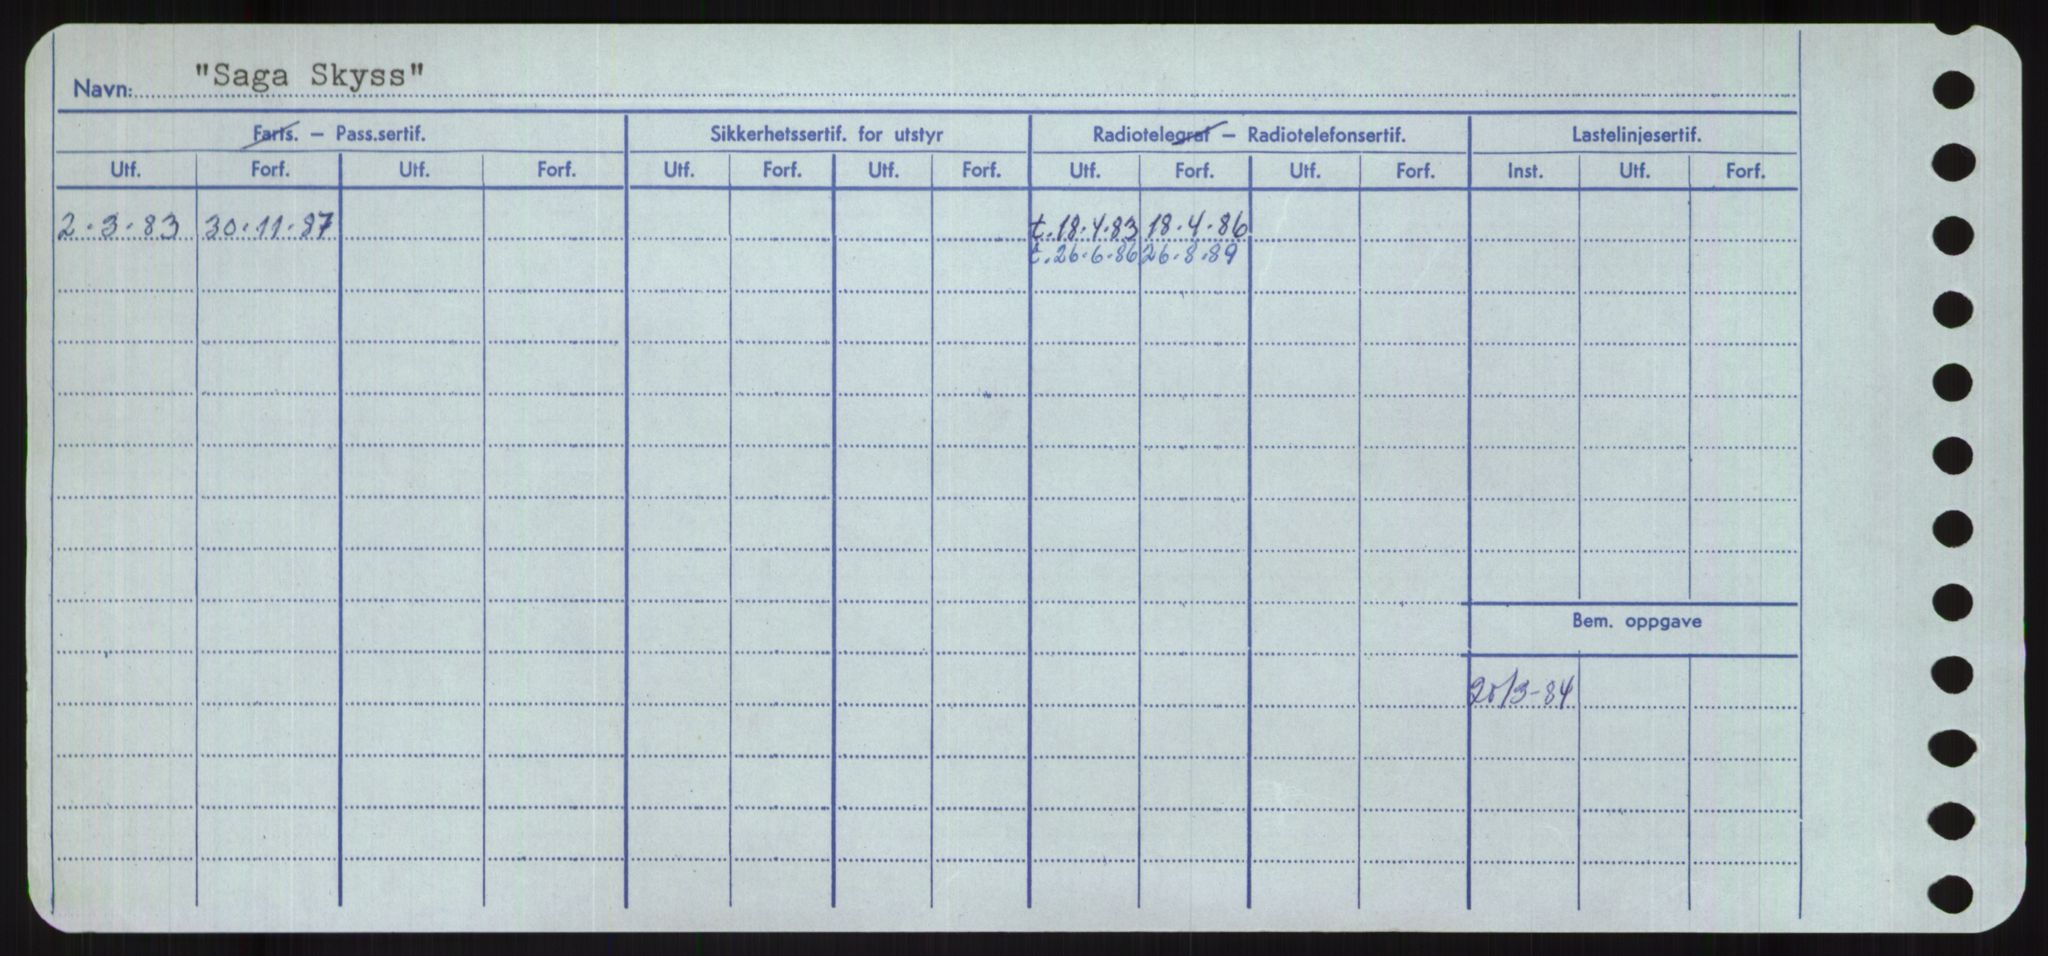 Navn: "Saga Skyss"
Farts. – Pass.sertif. Sikkerhetssertif. for utstyr Radiotelegraf – Radiotelefonsertif. Lastelinjesertif.
Utf. Forf. Utf. Forf. Utf. Forf. Utf. Forf. Utf. Forf. Utf. Forf. Inst. Utf. Forf.
2.3.83 30.11.87 t.18.4.83 18.4.86
t.26.6.86 26.8.89
Bem. oppgave
20/3-84